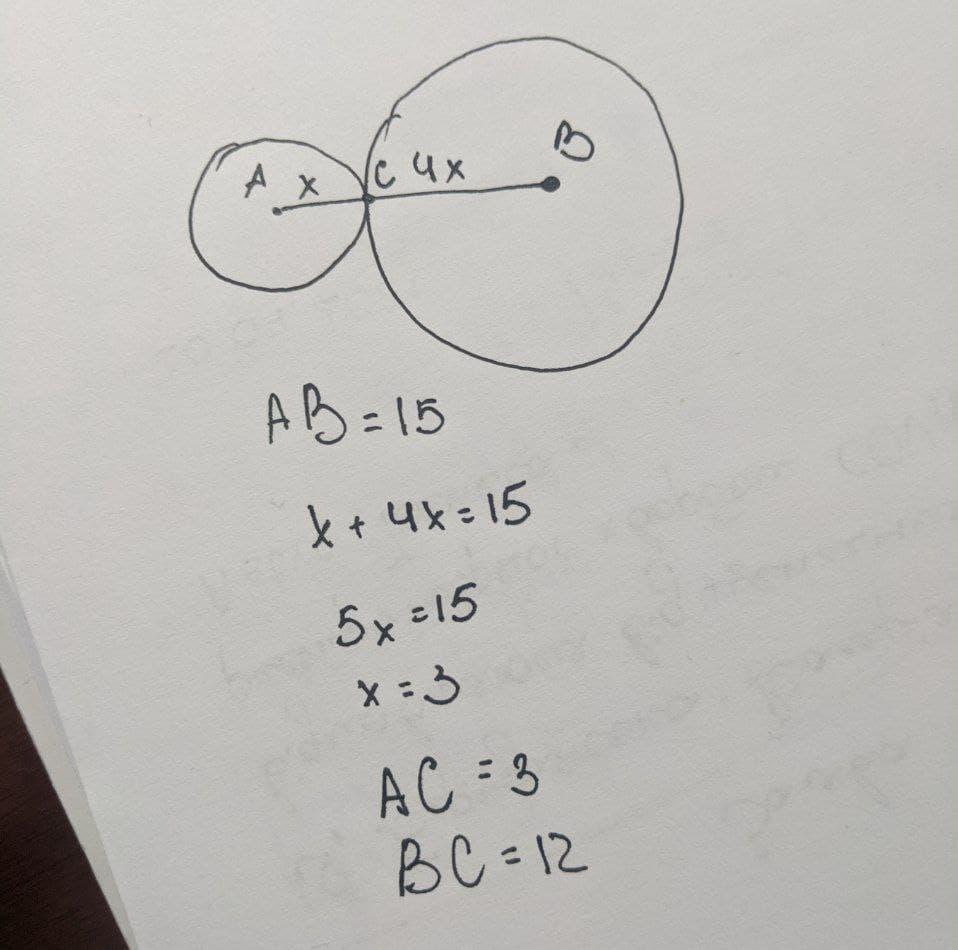 A x C 4x B
AB = 15
x + 4x = 15
5x = 15
x = 3
AC = 3
BC = 12